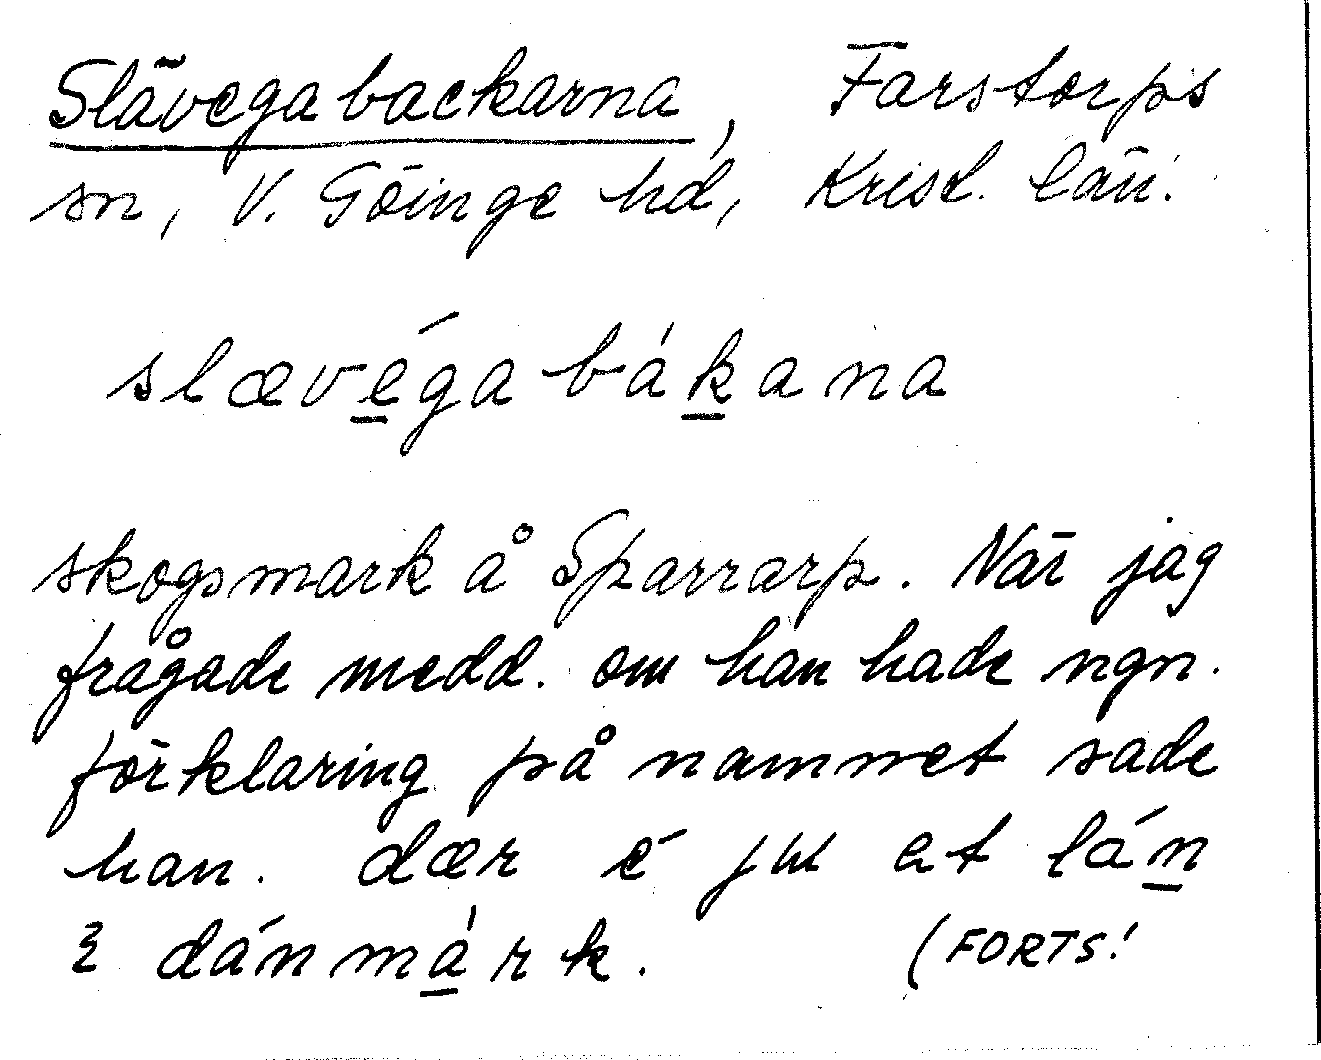 Slävegabackarna, Farstorps
sn, V. Göinge hd, Krist. län.
slævéga bákana
skogsmark å Sparrarp. När jag
frågade medd. om han hade ngn.
förklaring på namnet sade
han. dær é ju et lán
i dánmárk. (FORTS!